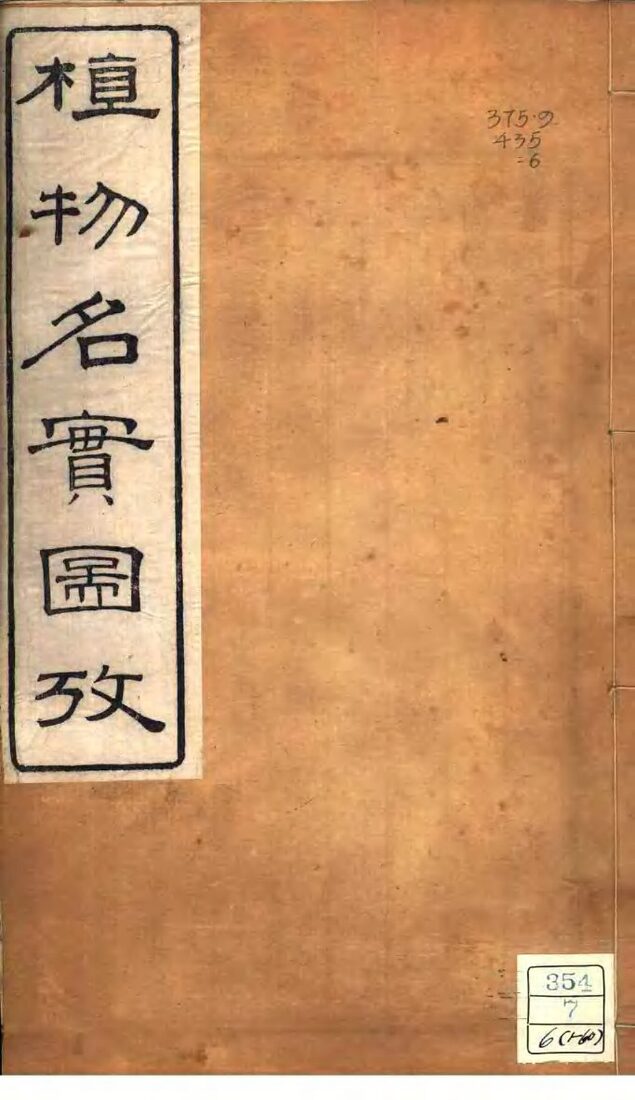 植物名實圖攷
375·9
435
=6
354
7
6(1-60)